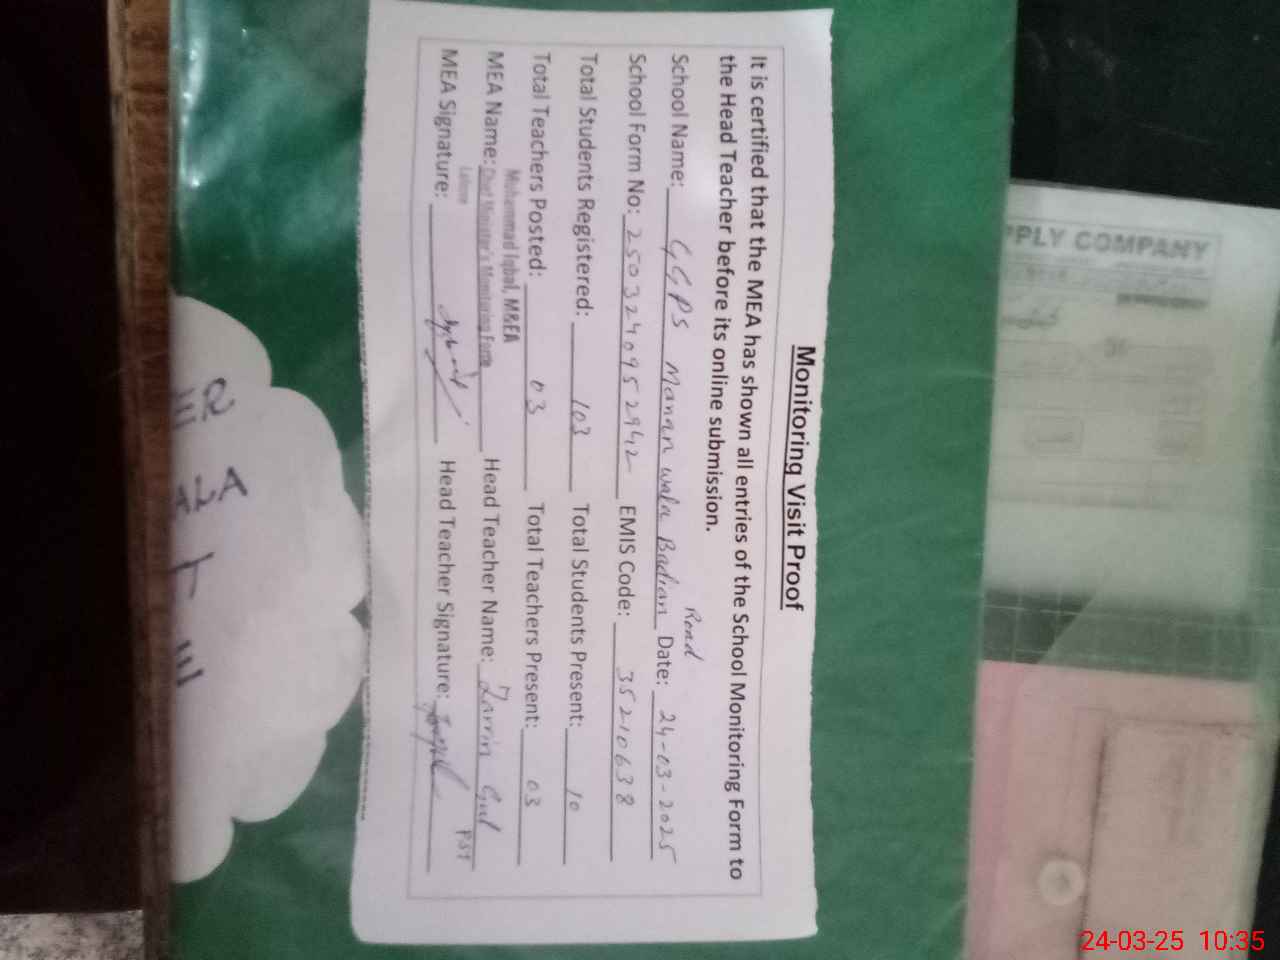 Monitoring Visit Proof
It is certified that the MEA has shown all entries of the School Monitoring Form to
the Head Teacher before its online submission.
Road
School Name: GGPS Manan wala Badian Date: 24-03-2025
School Form No: 2503240952942 EMIS Code: 35210638
Total Students Registered: 103 Total Students Present: 10
Total Teachers Posted: 03 Total Teachers Present: 03
Muhammad Iqbal, M&EA
MEA Name: Chief Minister's Monitoring Force Head Teacher Name: Zarrin Gul
Lahore PST
MEA Signature: Head Teacher Signature:
PPLY COMPANY
ER
ALA
T
III
24-03-25 10:35